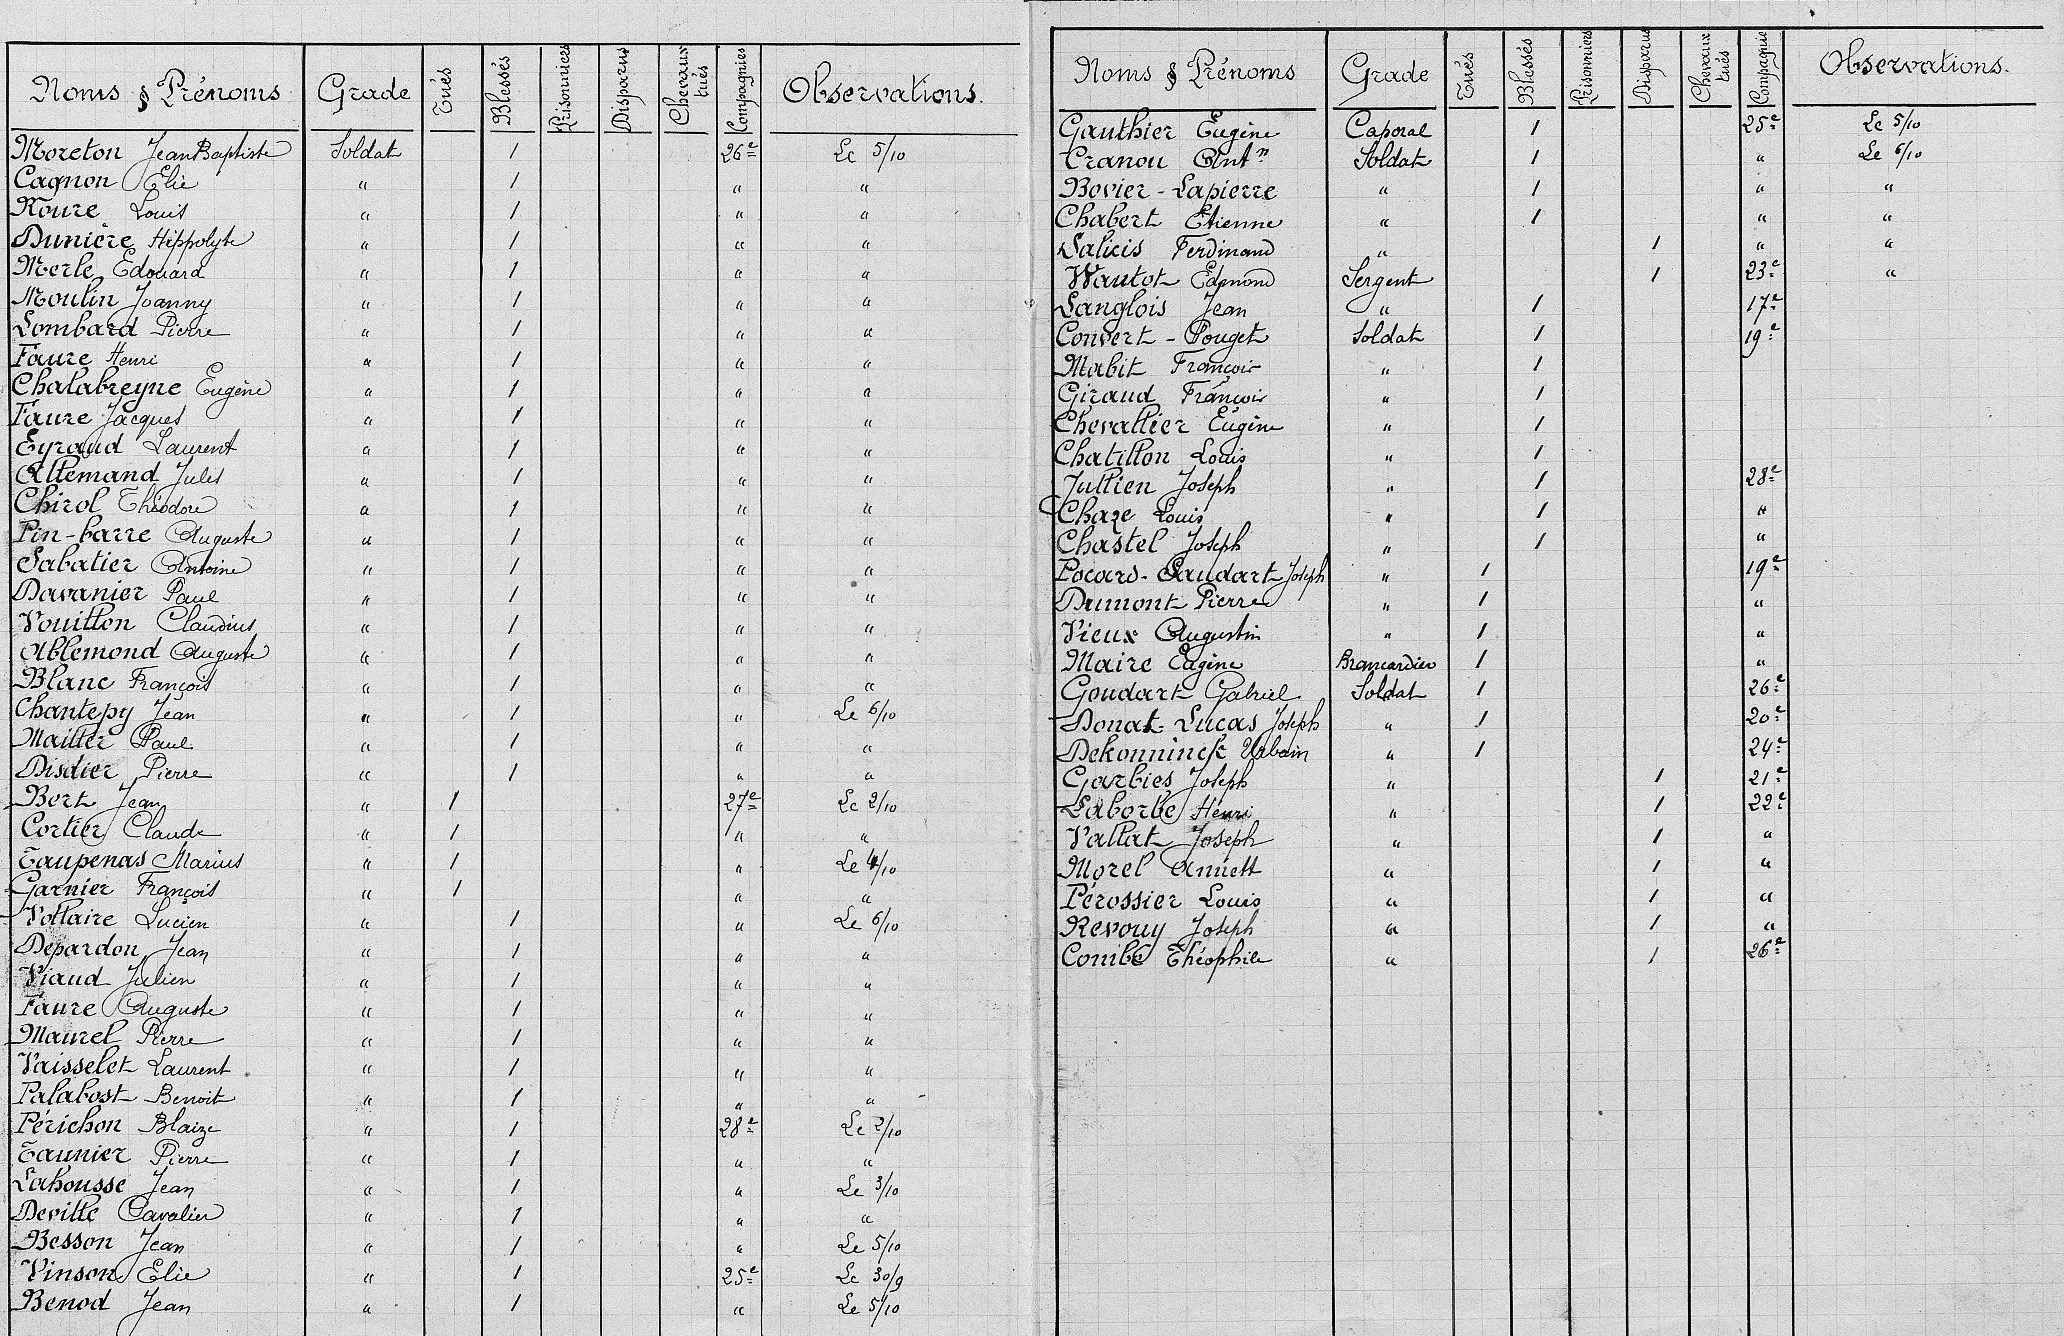 Noms & Prénoms Grade Tués Blessés Prisonniers Disparus Chevaux tués Compagnies Observations.
Moreton Jean Baptiste Soldat 1 26e Le 5/10
Cagnon Elie " 1 " "
Roure Louis " 1 " "
Dunière Hippolyte " 1 " "
Merle Edouard " 1 " "
Moulin Joanny " 1 " "
Lombard Pierre " 1 " "
Faure Henri " 1 " "
Chalabreyne Eugène " 1 " "
Faure Jacques " 1 " "
Eyraud Laurent " 1 " "
Allemand Jules " 1 " "
Chirol Théodore " 1 " "
Pin-barre Auguste " 1 " "
Sabatier Antoine " 1 " "
Davanier Paul " 1 " "
Vouillon Claudius " 1 " "
Ablemond Auguste " 1 " "
Blanc François " 1 " "
Chantepy Jean " 1 " Le 6/10
Mailler Paul " 1 " "
Disdier Pierre " 1 " "
Bert Jean " 1 27e Le 2/10
Cortier Claude " 1 " "
Taupenas Marius " 1 " Le 4/10
Garnier François " 1 " "
Vollaire Lucien " 1 " Le 6/10
Depardon Jean " 1 " "
Viaud Julien " 1 " "
Faure Auguste " 1 " "
Maurel Pierre " 1 " "
Vaisselet Laurent " 1 " "
Palabost Benoit " 1 " "
Périchon Blaize " 1 28e Le 2/10
Taunier Pierre " 1 " "
Lahousse Jean " 1 " Le 3/10
Deville Cavalier " 1 " "
Besson Jean " 1 " Le 5/10
Vinson Elie " 1 25e Le 30/9
Benod Jean " 1 " Le 5/10
Noms & Prénoms Grade Tués Blessés Prisonniers Disparus Chevaux tués Compagnie Observations.
Gauthier Eugène Caporal 1 25e Le 5/10
Cranou Antn Soldat 1 " Le 6/10
Bovier-Lapierre " 1 " "
Chabert Etienne " 1 " "
Salicis Ferdinand " 1 " "
Wautot Edmond Sergent 1 23e "
Langlois Jean " 1 17e
Convert-Pouget Soldat 1 19e
Mabit François " 1
Giraud François " 1
Chevallier Eugène " 1
Chatillon Louis " 1
Jullien Joseph " 1 28e
Chaze Louis " 1 "
Chastel Joseph " 1 "
Pocard-Gaudart Joseph " 1 19e
Dumont Pierre " 1 "
Vieux Augustin " 1 "
Maire Eugène Brancardier 1 "
Goudart Gabriel Soldat 1 26e
Donat-Lucas Joseph " 1 20e
Dekonninck Urbain " 1 24e
Garbies Joseph " 1 21e
Laborbe Henri " 1 22e
Vallat Joseph " 1 "
Morel Annett " 1 "
Pérossier Louis " 1 "
Revouy Joseph " 1 "
Combe Théophile " 1 26e